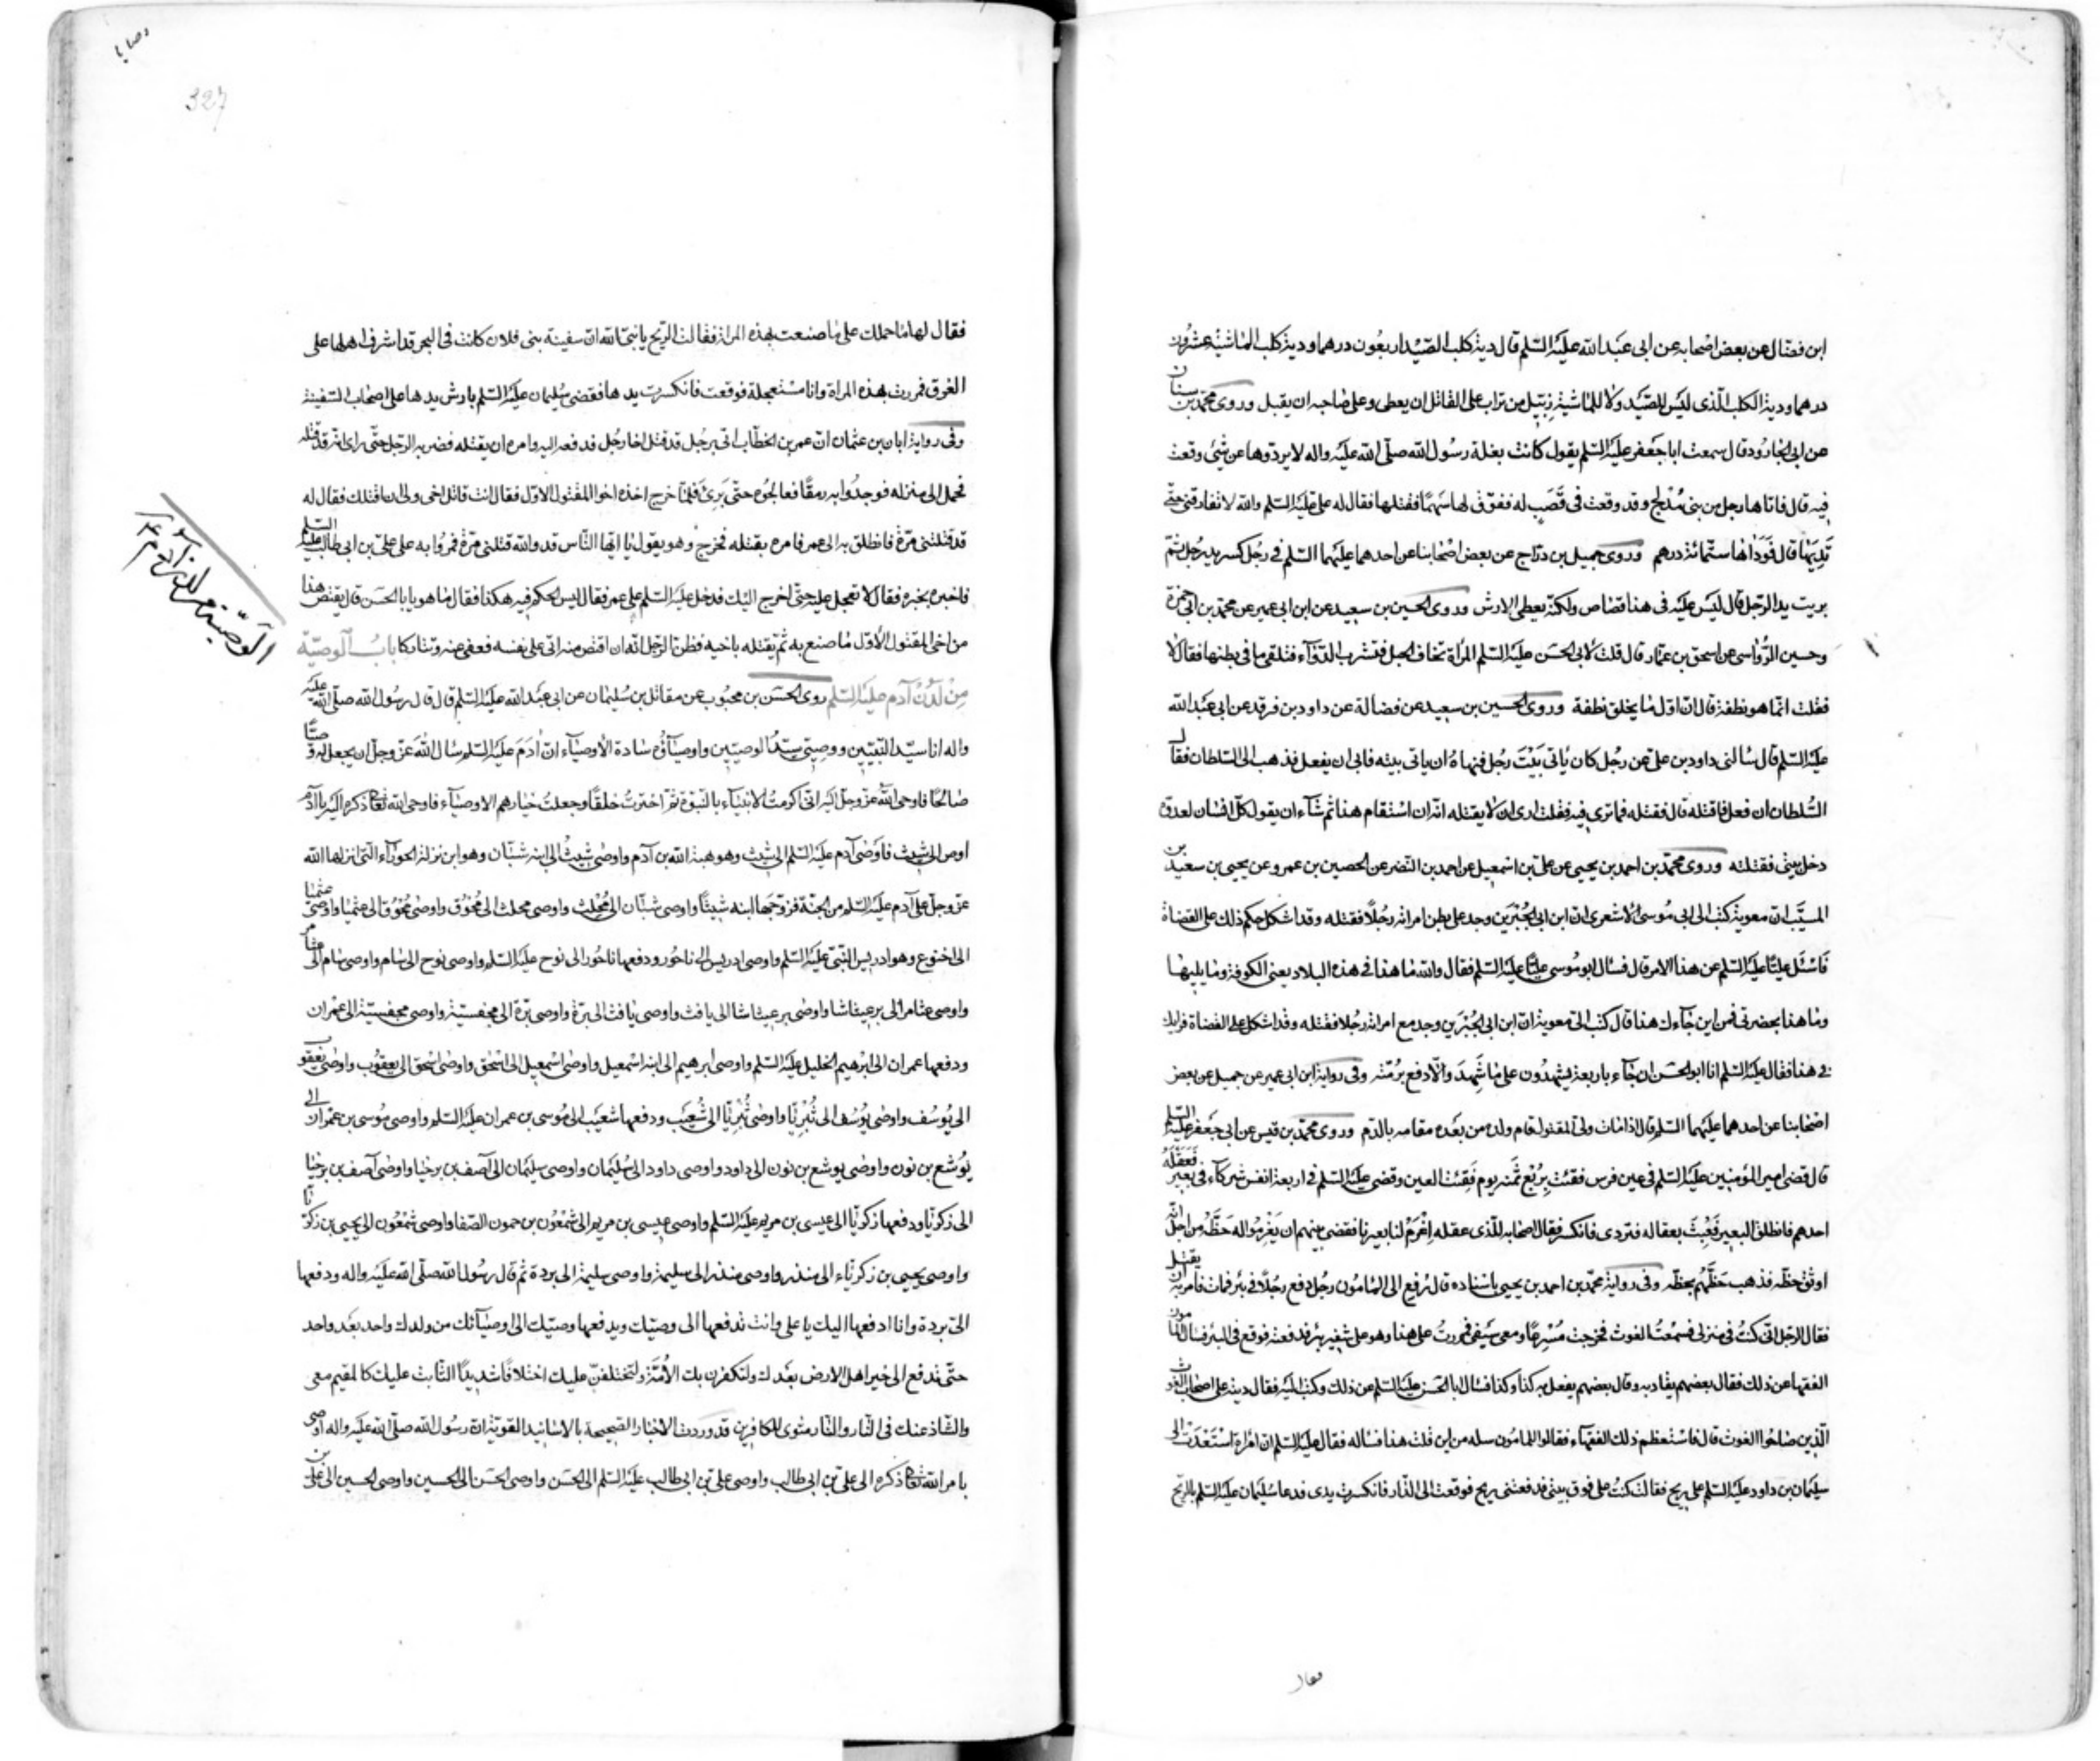 ابن فضال عن بعض اصحابه عن ابى عبد الله عليه السلم قال دية كلب الصيد اربعون درهما ودية كلب الماشية عشرون
درهما ودية الكلب الذى ليس للصيد ولا للماشية زبيل من تراب على القاتل ان يعطى وعلى صاحبه ان يقبل وروى محمد بن سنان
عن ابى الجارود قال سمعت ابا جعفر عليه السلم يقول كانت بغلة رسول الله صلى الله عليه واله لا يردوها عن شئ وقعت
فيه قال فاتاها رجل من بنى مدلج وقد وقعت فى قصب له ففوق لها سهما فقتلها فقال له على عليه السلم والله لا تفارقنى حتى
تديها قال فوداها ستمائة درهم وروى جميل بن دراج عن بعض اصحابنا عن احدهما عليهما السلم فى رجل كسر يد رجل ثم
بريت يد الرجل قال ليس عليه فى هذا قصاص ولكنه يعطى الارش وروى الحسين بن سعيد عن ابن ابى عمير عن محمد بن ابى حمزة
وحسين الرواسى عن اسحق بن عمار قال قلت لابى الحسن عليه السلم المراة تخاف الحبل فتشرب الدواء فتلقى ما فى بطنها فقال لا
فقلت انما هو نطفة قال ان اول ما يخلق نطفة وروى الحسين بن سعيد عن فضالة عن داود بن فرقد عن ابى عبد الله
عليه السلم قال سالنى داود بن على عن رجل كان ياتى بيت رجل فنهاه ان ياتى بيته فابى ان يفعل فذهب الى السلطان فقال
السلطان ان فعل فاقتله قال فقتله فما ترى فيه فقلت ارى ان لا يقتله انه ان استقام هذا ثم شاء ان يقول كل انسان لعدوه
دخل بيتى فقتلته وروى محمد بن احمد بن يحيى عن على بن اسمعيل عن احمد بن النضر عن الحصين بن عمرو عن يحيى بن سعيد بن
المسيب ان معوية كتب الى ابى موسى الاشعرى ان ابن ابى الجسرين وجد على بطن امراته رجلا فقتله وقد اشكل حكم ذلك على القضاة
فاسئل عليا عليه السلم عن هذا الامر قال فسال ابو موسى عليا عليه السلم فقال والله ما هذا فى هذه البلاد يعنى الكوفة وما يليها
وما هذا بحضرتى فمن اين جاءك هذا قال كتب الى معوية ان ابن ابى الجسرين وجد مع امراته رجلا فقتله وقد اشكل على القضاة فرايك
فى هذا فقال عليه السلم انا ابو الحسن ان جاء باربعة يشهدون على ما شهد والا دفع برمته وفى رواية ابن ابى عمير عن جميل عن بعض
اصحابنا عن احدهما عليهما السلم قال اذا مات ولى المقتول قام ولده من بعده مقامه بالدم وروى محمد بن قيس عن ابى جعفر عليه السلم
قال قضى امير المؤمنين عليه السلم فى عين فرس فقئت بربع ثمنه يوم فقئت العين وقضى عليه السلم فى اربعة انفس شركاء فى بعير فعقله
احدهم فانطلق البعير فعبث بعقاله فتردى فانكسر فقال اصحابه للذى عقله اغرم لنا بعيرنا فقضى بينهم ان يغرموا له حظه من اجل انه
اوثق حظه فذهب حظهم بحظه وفى رواية محمد بن احمد بن يحيى باسناده قال رفع الى المامون رجل دفع رجلا فى بئر فمات فامر به ان يقتل
فقال الرجل انى كنت فى منزلى فسمعت الغوث فخرجت مسرعا ومعى سيفى فمررت على هذا وهو على شفير بئر فدفعته فوقع فى البئر فسال المامون
الفقها عن ذلك فقال بعضهم يقاد به وقال بعضهم يفعل به كذا وكذا فسال ابا الحسن عليه السلم عن ذلك وكتب اليه فقال ديته على اصحاب الغوث
الذين صاحوا الغوث قال فاستعظم ذلك الفقهاء فقالوا للمامون سله من اين قلت هذا فساله فقال عليه السلم ان امراة استعدت الى
سليمان بن داود عليه السلم على ريح فقالت كنت على فوق بيتى فدفعتنى ريح فوقعت الى الدار فانكسرت يدى فدعا سليمان عليه السلم بالريح
فقال
وصايا
327
فقال لها ما حملك على ما صنعت بهذه المراة فقالت الريح يا نبى الله ان سفينة بنى فلان كانت فى البحر قد اشرف اهلها على
الغرق فمررت بهذه المراة وانا مستعجلة فوقعت فانكسرت يدها فقضى سليمان عليه السلم بارش يدها على اصحاب السفينة
وفى رواية ابان بن عثمان ان عمر بن الخطاب اتى برجل قد قتل اخا رجل فدفعه اليه وامره ان يقتله فضربه الرجل حتى راى انه قد قتله
فحمل الى منزله فوجدوا به رمقا فعالجوه حتى برئ فلما خرج اخذه اخوا المقتول الاول فقال انت قاتل اخى ولى ان اقتلك فقال له
قد قتلتنى مرة فانطلق به الى عمر فامره بقتله فخرج وهو يقول يا ايها الناس قد والله قتلنى مرة فمروا به على على بن ابى طالب عليه السلم
فاخبره بخبره فقال لا تعجل عليه حتى اخرج اليك فدخل عليه السلم على عمر فقال ليس الحكم فيه هكذا فقال ما هو يا با الحسن قال يقتص هذا
من اخى المقتول الاول ما صنع به ثم يقتله باخيه فظن الرجل انه ان اقتص منه اتى على نفسه فعفى عنه وتتاركا باب الوصية
من لدن آدم عليه السلم روى الحسن بن محبوب عن مقاتل بن سليمان عن ابى عبد الله عليه السلم قال قال رسول الله صلى الله عليه
واله انا سيد النبيين ووصيى سيد الوصيين واوصياؤه سادة الاوصياء ان آدم عليه السلم سال الله عز وجل ان يجعل له وصيا
صالحا فاوحى الله عز وجل اليه انى اكرمت الانبياء بالنبوة ثم اخترت خلقا وجعلت خيارهم الاوصياء فاوحى الله تعالى ذكره اليه يا آدم
اوص الى شيث فاوصى آدم عليه السلم الى شيث وهو هبة الله بن آدم واوصى شيث الى ابنه شبان وهو ابن نزلة الحوراء التى انزلها الله
عز وجل على آدم عليه السلم من الجنة فزوجها ابنه شيثا واوصى شبان الى محلث واوصى محلث الى محوق واوصى محوق الى عثميا واوصى عثميا
الى اخنوع وهو ادريس النبى عليه السلم واوصى ادريس الى ناحور ودفعها ناحور الى نوح عليه السلم واوصى نوح الى سام واوصى سام الى عثامر
واوصى عثامر الى برعيثاشا واوصى برعيثاشا الى يافث واوصى يافث الى برة واوصى برة الى جفسية واوصى جفسية الى عمران
ودفعها عمران الى ابرهيم الخليل عليه السلم واوصى ابرهيم الى ابنه اسمعيل واوصى اسمعيل الى اسحق واوصى اسحق الى يعقوب واوصى يعقوب
الى يوسف واوصى يوسف الى بثريا واوصى بثريا الى شعيب ودفعها شعيب الى موسى بن عمران عليه السلم واوصى موسى بن عمران الى
يوشع بن نون واوصى يوشع بن نون الى داود واوصى داود الى سليمان واوصى سليمان الى آصف بن برخيا واوصى آصف بن برخيا
الى زكريا ودفعها زكريا الى عيسى بن مريم عليه السلم واوصى عيسى بن مريم الى شمعون بن حمون الصفا واوصى شمعون الى يحيى بن زكريا
واوصى يحيى بن زكرياء الى منذر واوصى منذر الى سليمة واوصى سليمة الى بردة ثم قال رسول الله صلى الله عليه واله ودفعها
الى بردة وانا ادفعها اليك يا على وانت تدفعها الى وصيك ويدفعها وصيك الى اوصيائك من ولدك واحد بعد واحد
حتى تدفع الى خير اهل الارض بعدك ولتكفرن بك الامة ولتختلفن عليك اختلافا شديدا الثابت عليك كالمقيم معى
والشاذ عنك فى النار والنار مثوى للكافرين قد وردت الاخبار الصحيحة بالاسانيد القوية ان رسول الله صلى الله عليه واله اوصى
بامر الله تعالى ذكره الى على بن ابى طالب واوصى على بن ابى طالب عليه السلم الى الحسن واوصى الحسن الى الحسين واوصى الحسين الى على بن
الوصية من لدن آدم ع